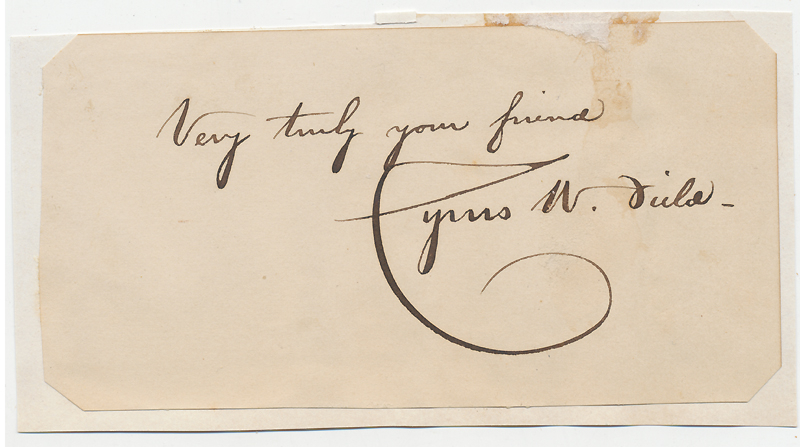 Very truly your friend
Cyrus W. Field -